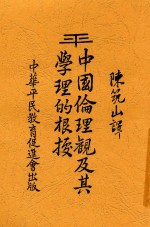 陳筑山譯
平
中國倫理觀及其
學理的根據
中華平民教育促進會出版